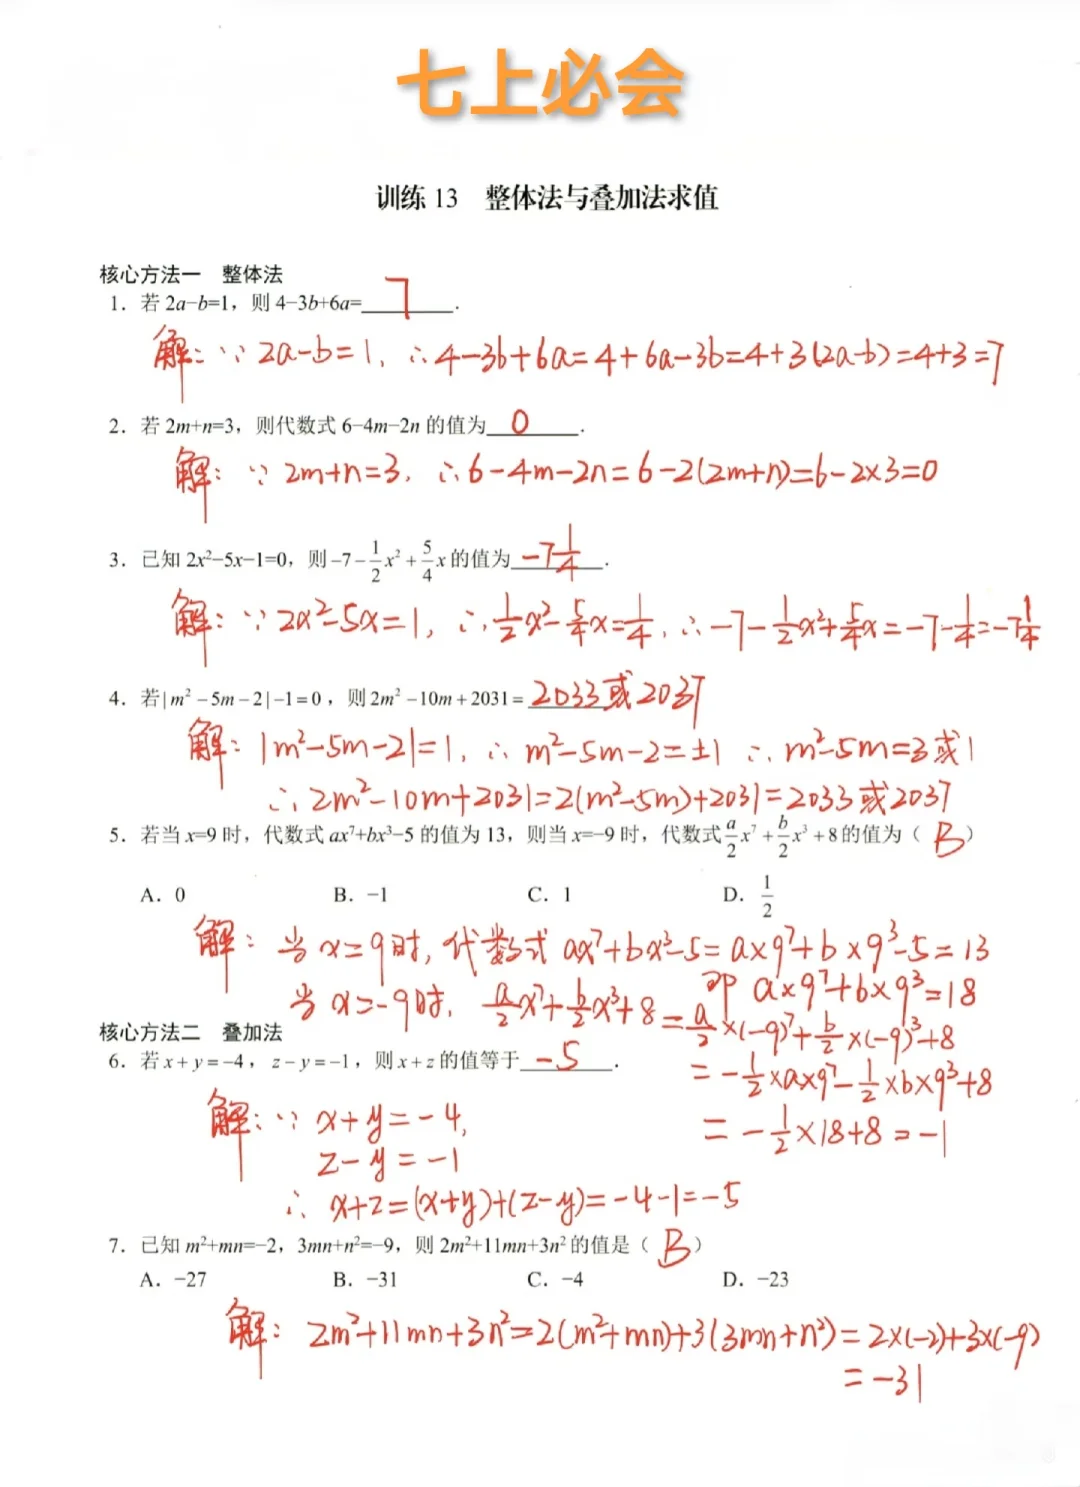 七上必会
训练 13 整体法与叠加法求值
核心方法一 整体法
1. 若 2a−b=1，则 4−3b+6a=7.
解：∵ 2a−b=1，∴4−3b+6a=4+6a−3b=4+3(2a−b)=4+3=7
2. 若 2m+n=3，则代数式 6−4m−2n 的值为 0.
解：∵ 2m+n=3，∴6−4m−2n=6−2(2m+n)=6−2×3=0
3. 已知 2x²−5x−1=0，则 −7−1/2x²+5/4x 的值为 −7 1/4.
解：∵2x²−5x=1，∴1/2x²−5/4x=1/4，∴−7−1/2x²+5/4x=−7−1/4=−7 1/4
4. 若|m²−5m−2|−1=0，则 2m²−10m+2031=2033或2037
解：|m²−5m−2|=1，∴ m²−5m−2=±1 ∴ m²−5m=3或1
∴2m²−10m+2031=2(m²−5m)+2031=2033或2037
5. 若当 x=9 时，代数式 ax⁷+bx³−5 的值为 13，则当 x=−9 时，代数式 a/2x⁷+b/2x³+8 的值为（B）
A. 0 B. −1 C. 1 D. 1/2
解：当 x=9时，代数式 ax⁷+bx³−5=a×9⁷+b×9³−5=13
即 a×9⁷+b×9³=18
当 x=−9时，a/2x⁷+b/2x³+8=a/2×(−9)⁷+b/2×(−9)³+8
=−1/2×a×9⁷−1/2×b×9³+8
=−1/2×18+8=−1
核心方法二 叠加法
6. 若 x+y=−4，z−y=−1，则 x+z 的值等于 −5.
解：∵ x+y=−4,
z−y=−1
∴ x+z=(x+y)+(z−y)=−4−1=−5
7. 已知 m²+mn=−2，3mn+n²=−9，则 2m²+11mn+3n² 的值是（B）
A. −27 B. −31 C. −4 D. −23
解：2m²+11mn+3n²=2(m²+mn)+3(3mn+n²)=2×(−2)+3×(−9)
=−31